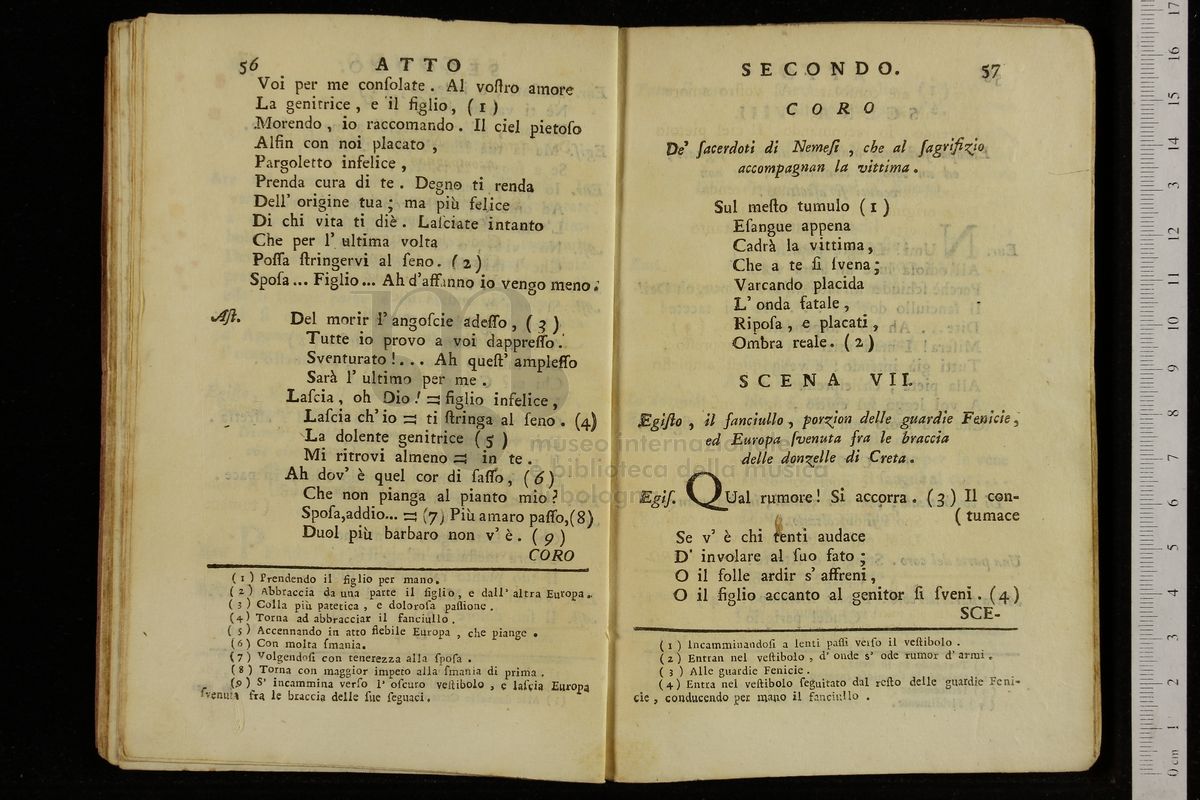 56 ATTO
Voi per me conſolate . Al voſtro amore
La genitrice , e il figlio, (1)
Morendo , io raccomando . Il ciel pietoſo
Alfin con noi placato ,
Pargoletto infelice ,
Prenda cura di te . Degno ti renda
Dell' origine tua ; ma più felice
Di chi vita ti diè . Laſciate intanto
Che per l' ultima volta
Poſſa ſtringervi al ſeno. (2)
Spoſa ... Figlio ... Ah d'affanno io vengo meno.
Aſt. Del morir l'angoſcie adeſſo , (3)
Tutte io provo a voi dappreſſo .
Sventurato !... Ah queſt' ampleſſo
Sarà l' ultimo per me .
Laſcia , oh Dio ! = figlio infelice ,
Laſcia ch' io = ti ſtringa al ſeno . (4)
La dolente genitrice (5)
Mi ritrovi almeno = in te .
Ah dov' è quel cor di ſaſſo, (6)
Che non pianga al pianto mio ?
Spoſa,addio... = (7) Più amaro paſſo,(8)
Duol più barbaro non v' è . (9)
CORO
(1) Prendendo il figlio per mano.
(2) Abbraccia da una parte il figlio , e dall' altra Europa .
(3) Colla più patetica , e doloroſa paſſione .
(4) Torna ad abbracciar il fanciullo .
(5) Accennando in atto flebile Europa , che piange .
(6) Con molta ſmania.
(7) Volgendoſi con tenerezza alla ſpoſa .
(8) Torna con maggior impeto alla ſmania di prima .
(9) S' incammina verſo l' oſcuro veſtibolo , e laſcia Europa
ſvenuta fra le braccia delle ſue ſeguaci .
SECONDO. 57
CORO
De' ſacerdoti di Nemeſi , che al ſagrifizio
accompagnan la vittima .
Sul meſto tumulo (1)
Eſangue appena
Cadrà la vittima ,
Che a te ſi ſvena ;
Varcando placida
L' onda fatale ,
Ripoſa , e placati ,
Ombra reale . (2)
SCENA VII.
Egiſto , il fanciullo , porzion delle guardie Fenicie ,
ed Europa ſvenuta fra le braccia
delle donzelle di Creta .
Egiſ. QUal rumore ! Si accorra . (3) Il con-
(tumace
Se v' è chi tenti audace
D' involare al ſuo fato ;
O il folle ardir s' affreni ,
O il figlio accanto al genitor ſi ſveni . (4)
SCE-
(1) Incamminandoſi a lenti paſſi verſo il veſtibolo .
(2) Entran nel veſtibolo , d' onde s' ode rumor d' armi .
(3) Alle guardie Fenicie .
(4) Entra nel veſtibolo ſeguitato dal reſto delle guardie Feni-
cie , conducendo per mano il fanciullo .
museo internazionale
e biblioteca della musica
bologna
0 cm 1 2 3 4 5 6 7 8 9 10 11 12 13 14 15 16 17